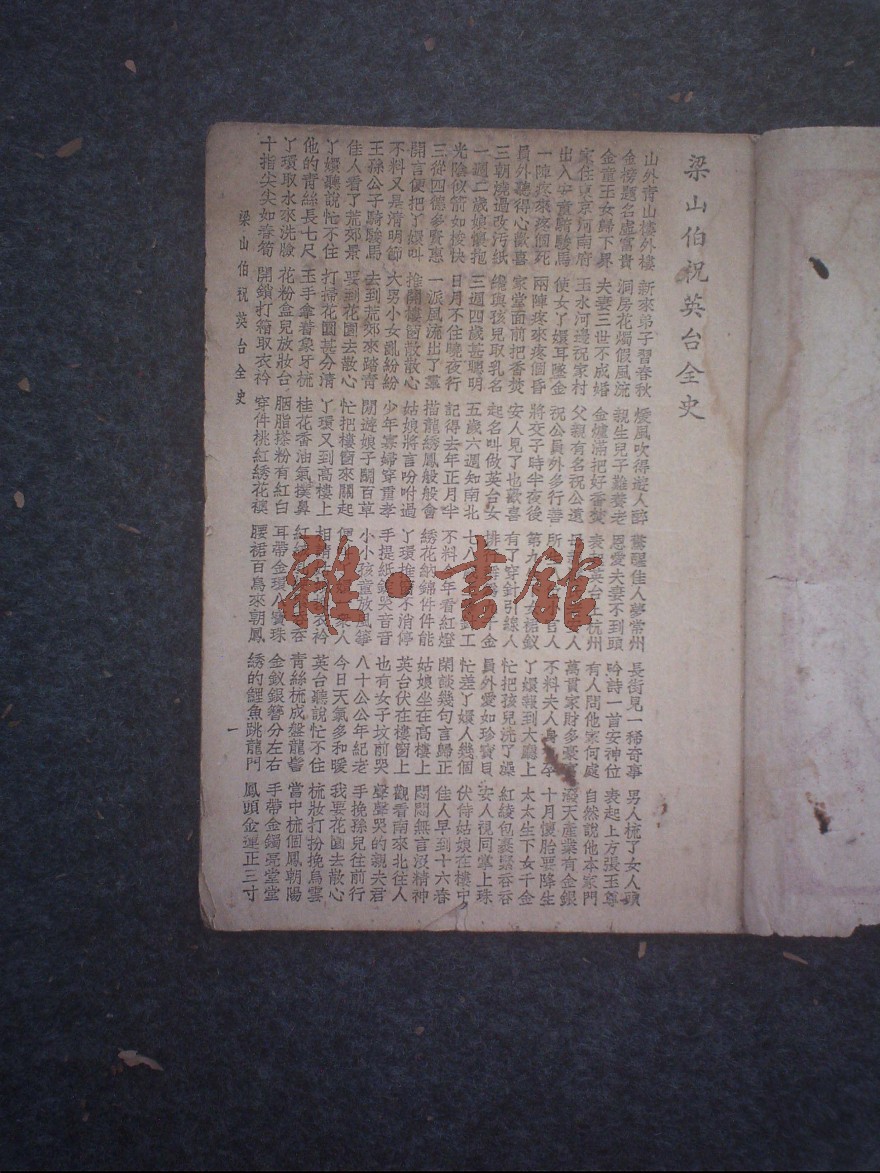 梁山伯祝英台全史
山外青山樓外樓 新來弟子習春秋 煖風吹得遊人醉 驚醒佳人夢常州 長街見一稀奇事 男人梳了女人頭
金榜題名虛富貴 洞房花燭假風流 親生兒子難養老 恩愛夫妻不到頭 吟詩一首安神位 表起上方張玉尊
金童玉女歸下界 夫妻三世不成婚 金爐滿把好香焚 表 英台上杭州 有人問他家何處 自然說他本家門
家住東京河南府 玉水河邊祝家村 父親有名祝公遠 萬貫家財多豪 潑天產業有金銀
出入安童騎駿馬 使女丫嬛耳墜金 祝公員外多行善 所 百人 不料夫人身 孕 十月懷胎要降生
一陣疼來疼個死 兩陣疼來疼個昏 將交子時半夜後 第九 女裙釵 丫嬛報到大廳上 太太生下女千金
員外聽得心歡喜 家堂面前把香焚 安人見了也歡喜 有了穿針引線人 忙把孩兒洗了澡 紅綾包裹緊吞吞
三朝燒過改污紙 纔與孩兒取乳名 起名叫做英台女 排 千金 員外愛如珍寶貝 安人視同掌上珠
一週二歲娘懷抱 三週四歲甚聰明 五歲六週知南北 七八 工 忙差了嬛人幾個 伏侍姑娘在樓中
光陰似箭如梭快 日月不住曉夜行 記得去年正月半 不料 年看紅燈 閑談幾句言歸正 佳人早到十六春
三從四德多賢惠 一派風流出了羣 描龍綉鳳般般會 綉花納錦件件能 姑娘坐在高樓上 悶悶無言沒精神
開言便把丫嬛叫 推開樓窗散散心 姑娘將言吩咐過 丫環推 不消停 英台伏在樓窗上 觀看南來北往人
不料又是清明節 大男小女亂紛紛 少年寡婦穿重孝 手提紙錢哭音音 也有女子坟前哭 聲聲哭的親夫君
王孫公子騎駿馬 去到荒郊來踏青 閒遊娘子鬪百草 小小孩童放風箏 八十公公年紀老 手挽孫兒往前行
佳人看了荒郊景 要到花園去散心 忙把樓窗來關起 便 人 今日天氣多和暖 我要花園去散心
丫嬛聽說忙不住 打掃花園甚分清 丫環又到高樓上 相請 衣衿 英台聽說忙不住 梳妝打扮挽烏雲
他的青絲長七尺 玉手拿着象牙梳 桂花香油氣撲鼻 紅 吞 青絲梳成盤龍髻 當中梳個鳳朝陽
丫環取水來洗臉 花粉盒兒放妝台 胭脂搽粉有紅白 耳帶金環八寶珠 金釵銀簪分左右 手帶金鐲亮堂堂
十指尖尖如春筍 開鎖打箱取衣衿 穿件桃紅綉花襖 腰裙百鳥來朝鳳 綉的鯉魚跳龍門 鳳頭金蓮正三寸
梁山伯祝英台全史 一
雜·書館